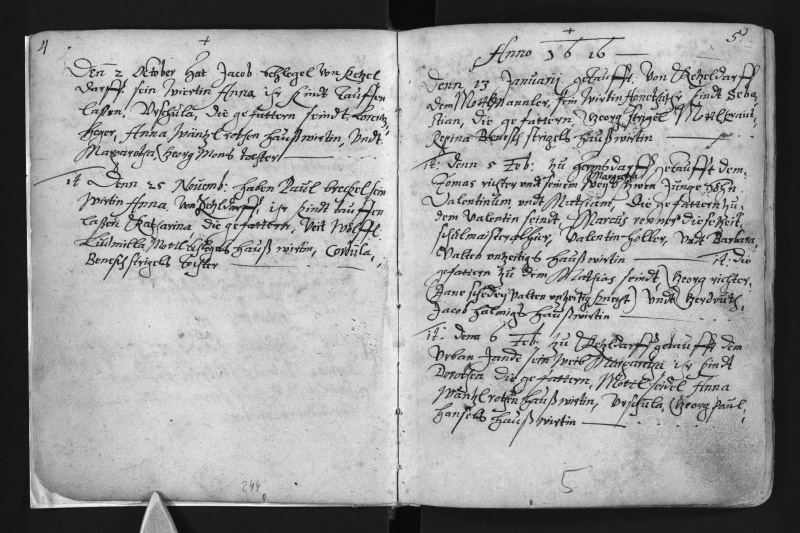 4
Den 2 October Hat Jacob Schlegel von Ketzel
darff: sein wirtin Anna ihr Kindt tauffen
laßen, Urschula, die gefattern seindt Lorentz
Heger, Anna haußwirtin, Undt
Margaretha Georg Mons tochter
it Denn 25 Nouemb: haben Paul sein
wirtin Anna, von , ihr kindt tauffen
laßen Katharina die gefattern, Veit Wolff
Ludmilla, Mottl Schlegels hauß wirtin, Cordula,
Benesch strigels tochter
244
5
Anno 1616
Denn 13 Januarij getaufft, von Ketzeldarff
dem sein wirtin ihr kindt Seba
stian, die gefattern, Georg strigel Mottl
Regina Benesch strigels haußwirtin
it: denn 5 Feb: zu getaufft dem
Tomas richter undt seinem weib Margretha zween Junge Söhn
Valentinum undt Mathium, Die gefattern zu
dem Valentin seindt, Marcus renner diese Zeit
schulmaister alhier, Valentin holler, Undt Barbara
Valten haußwirtin it: die
gefattern zu dem Mathias seindt, Georg richter,
Jane Valten knecht undt
Jacob haußwirtin
it: denn 6 Feb: zu Ketzldarff getaufft dem
Urban Jande sein weib Margaretha ihr kindt
Dorothea die gefattern, Mottl seidel Anna
haußwirtin, Urschula, Georg Paul
hansels haußwirtin
5